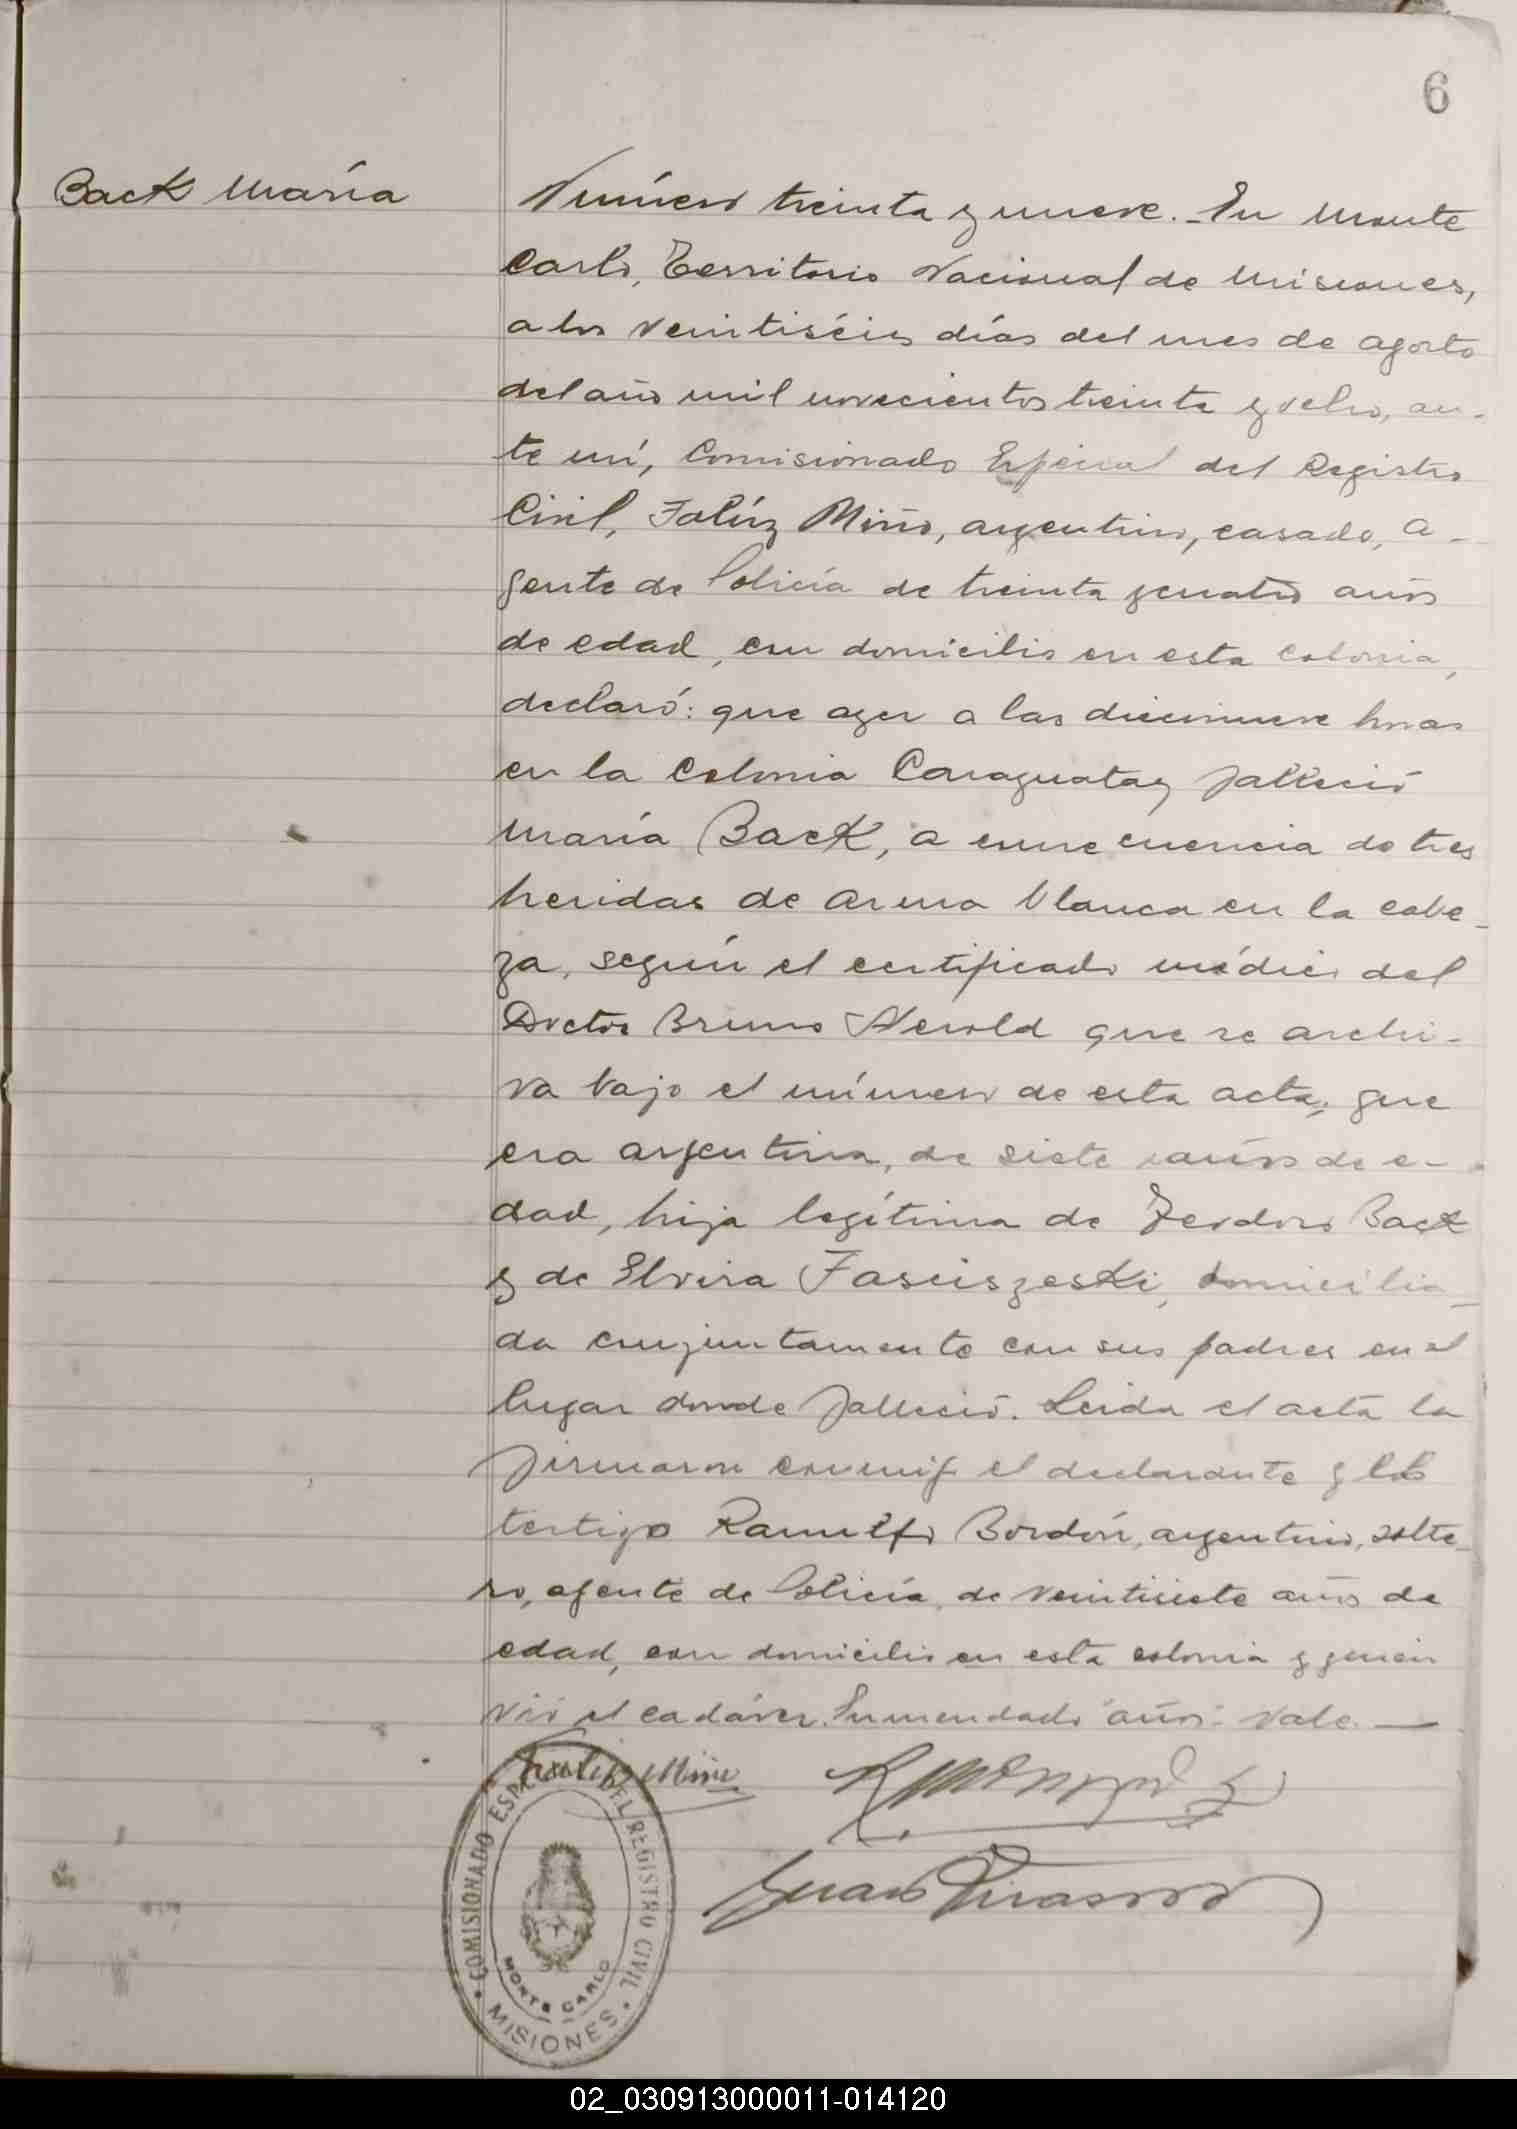 6
Back María
Número treinta y nueve. - En Monte
Carlo, Territorio Nacional de Misiones,
a los veintiséis días del mes de agosto
del año mil novecientos treinta y ocho, an-
te mí, Comisionado Especial del Registro
Civil, Miño, argentino, casado, a-
gente de Policía de treinta y cuatro años
de edad, con domicilio en esta colonia,
declaró: que ayer a las diecinueve horas
en la Colonia Caraguatay falleció
María Back, a consecuencia de tres
heridas de arma blanca en la cabe-
za, según el certificado médico del
Doctor Bruno Herold que se archi-
va bajo el número de esta acta; que
era argentina, de siete años de e-
dad, hija legítima de Teodoro Back
y de Elvira Fasciszeski, domicilia-
da conjuntamente con sus padres en el
lugar donde falleció. Leida el acta la
firmaron conmigo el declarante y los
testigo Ramulfo Bordón, argentino, solte-
ro, agente de Policía, de veintisiete años de
edad, con domicilio en esta colonia y quien
vió el cadáver. Enmendado "años": Vale. —
Miño
Juan
COMISIONADO ESPECIAL DEL REGISTRO CIVIL
MONTE CARLO
MISIONES
02_030913000011-014120